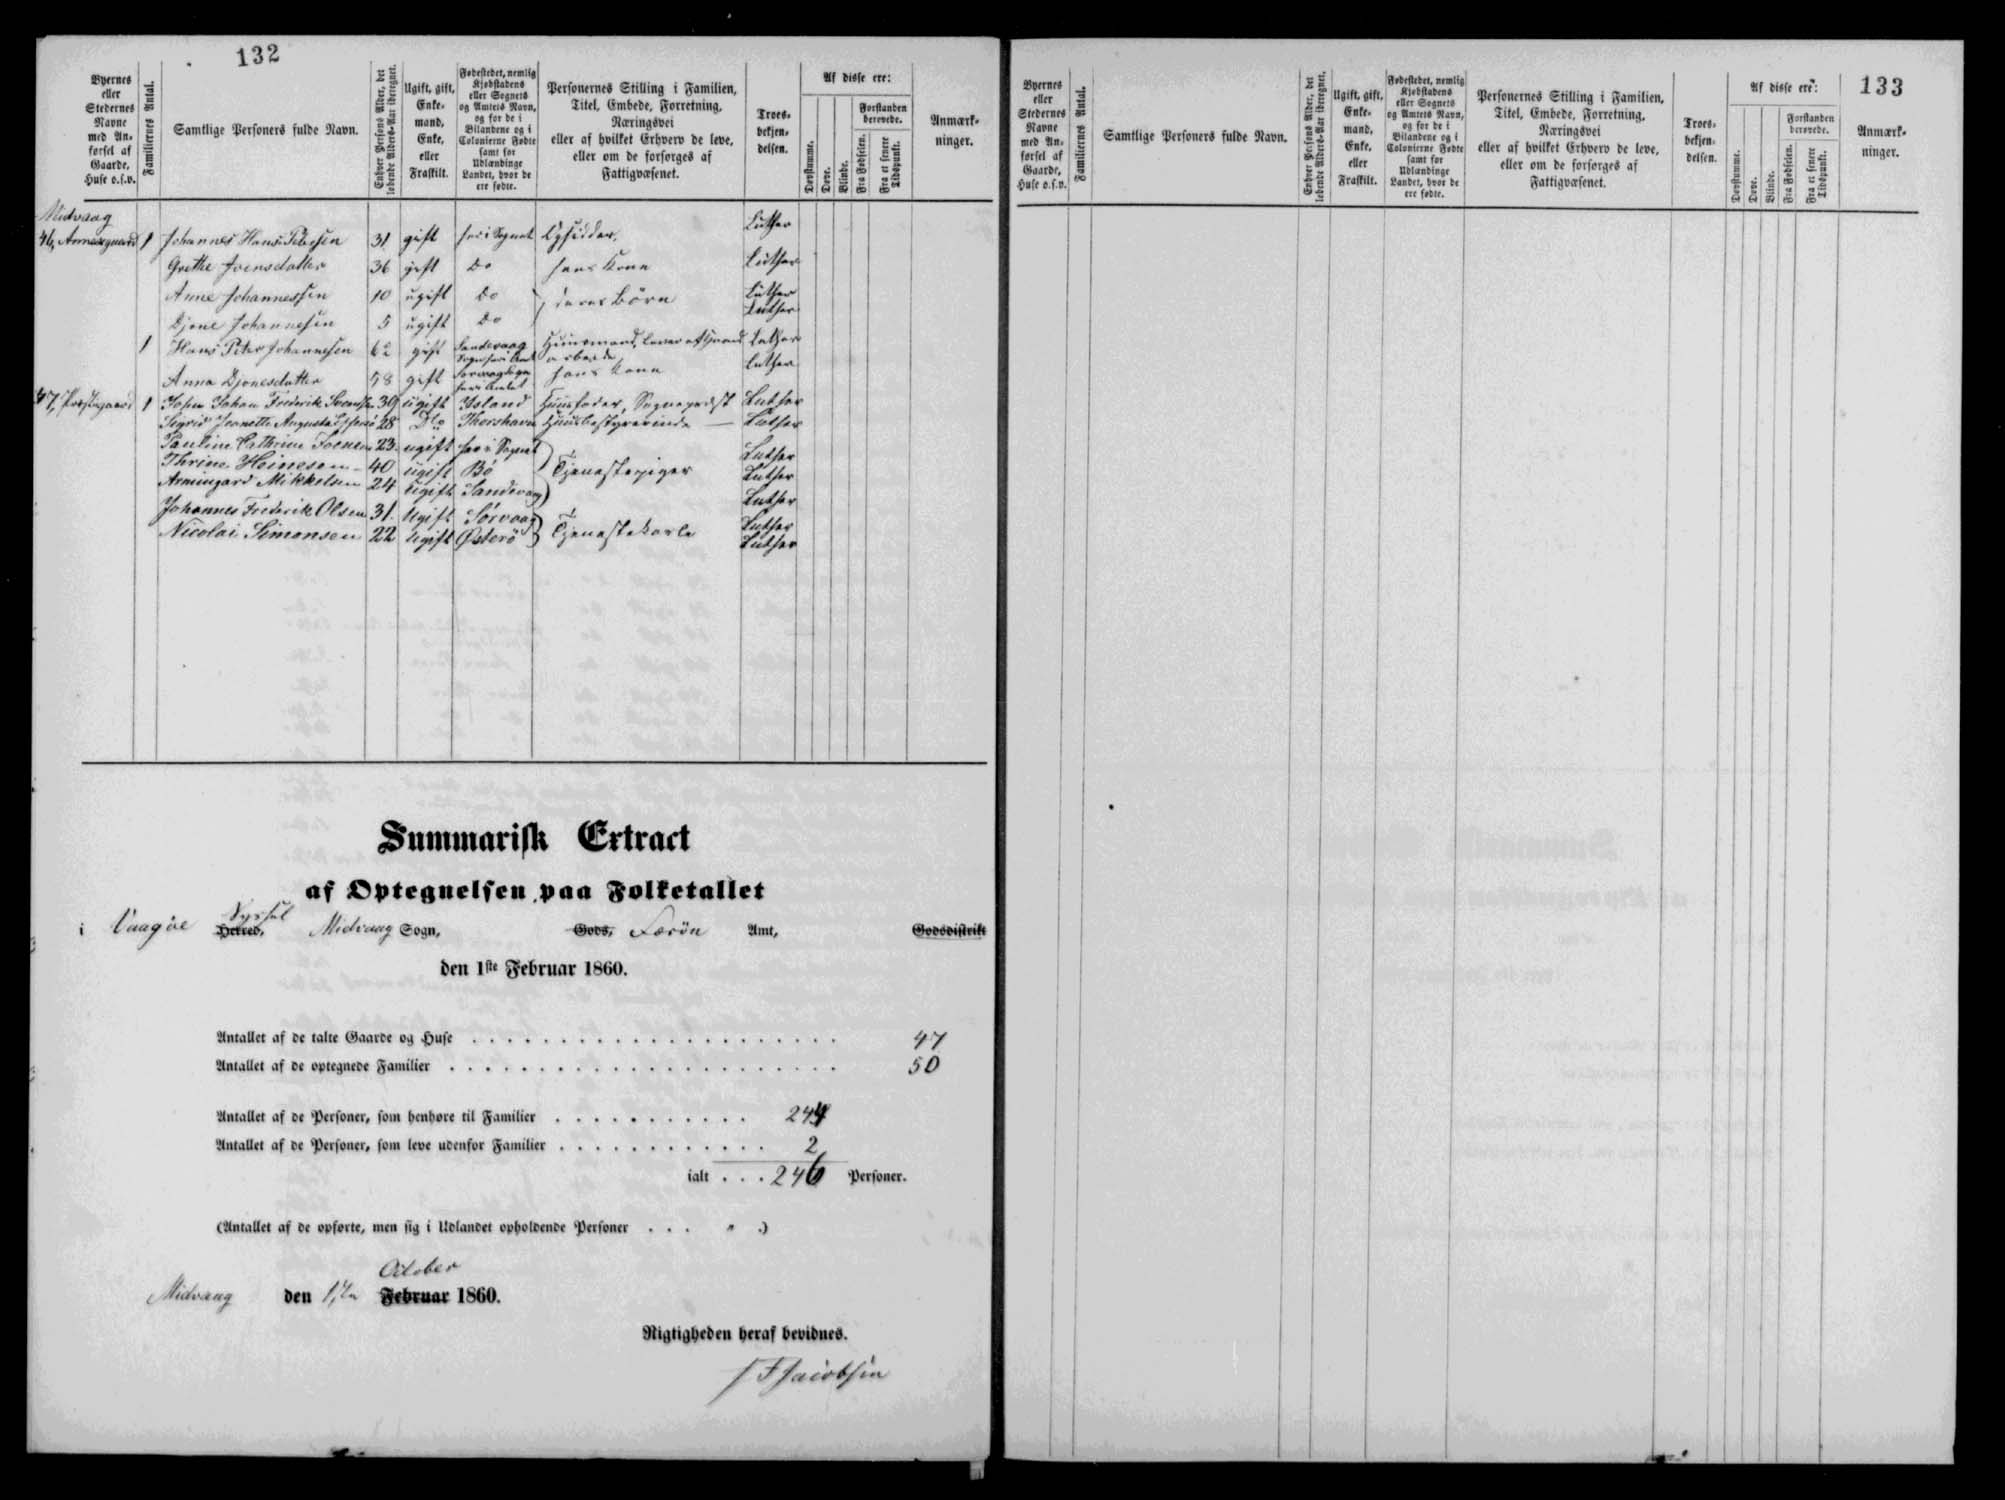 132
Byernes eller Stedernes Navne med Anførsel af Gaarde, Huse o.s.v.
Familiernes Antal.
Samtlige Personers fulde Navn.
Enhver Persons Alder, det løbende Alders-Aar iberegnet.
Ugift, gift, Enkemand, Enke, eller Fraskilt.
Fødestedet, nemlig Kjøbstadens eller Sognets og Amtets Navn, og for de i Bilandene og i Colonierne Fødte samt for Udlændinge Landet, hvor de ere fødte.
Personernes Stilling i Familien, Titel, Embede, Forretning, Næringsvei eller af hvilket Erhverv de leve, eller om de forsørges af Fattigvæsenet.
Troesbekjendelsen.
Af disse ere:
Døvstumme.
Døve.
Blinde.
Forstanden berøvede.
Fra Fødselen.
Fra et senere Tidspunkt.
Anmærkninger.
Midvaag
46, 1 Johannes Hans Petersen 31 gift her i Sognet Luther
Grethe Joensdatter 36 gift Do hans Kone Luther
Anne Johannesen 10 ugift Do } deres Börn Luther
Djone Johannesen 5 ugift Do Luther
1 Hans Peter Johannesen 62 gift Sandevaag Sogn her i Amt Huusmand, Lever af arbeide Luther
Anna Djonesdatter 58 gift her i Amtet hans Kone Luther
47, Præstegaard 1 John Johan Frederik 39 ugift Island Huusfader, Sognepræst Luther
Sigrid Jeanette Augusta 28 Do Thorshavn Huusbestyrerinde Luther
Pauline Cathrine Joensen 23 ugift her i Sognet Luther
Thrine Heinesen 40 ugift Bö } Tjenestepiger Luther
Armingard Mikkelsen 24 ugift Sandevaag Luther
Johannes Frederik Olsen 31. Ugift Sörvaag } Tjenestekarle Luther
Nicolai Simonsen 22 ugift Österö Luther
Summarisk Extract
af Optegnelsen paa Folketallet
Syssel
i Vaagöe Herred, Midvaag Sogn, Gods, Færön Amt, Godsdistrikt
den 1ste Februar 1860.
Antallet af de talte Gaarde og Huse . . . 47
Antallet af de optegnede Familier . . . 50
Antallet af de Personer, som henhøre til Familier . . . 244
Antallet af de Personer, som leve udenfor Familier . . . 2
ialt . . . 246 Personer.
(Antallet af de opførte, men sig i Udlandet opholdende Personer . . . " .)
October
Midvaag den Februar 1860.
Rigtigheden heraf bevidnes.
Jacobsen
133
Byernes eller Stedernes Navne med Anførsel af Gaarde, Huse o.s.v.
Familiernes Antal.
Samtlige Personers fulde Navn.
Enhver Persons Alder, det løbende Alders-Aar iberegnet.
Ugift, gift, Enkemand, Enke, eller Fraskilt.
Fødestedet, nemlig Kjøbstadens eller Sognets og Amtets Navn, og for de i Bilandene og i Colonierne Fødte samt for Udlændinge Landet, hvor de ere fødte.
Personernes Stilling i Familien, Titel, Embede, Forretning, Næringsvei eller af hvilket Erhverv de leve, eller om de forsørges af Fattigvæsenet.
Troesbekjendelsen.
Af disse ere:
Døvstumme.
Døve.
Blinde.
Forstanden berøvede.
Fra Fødselen.
Fra et senere Tidspunkt.
Anmærkninger.